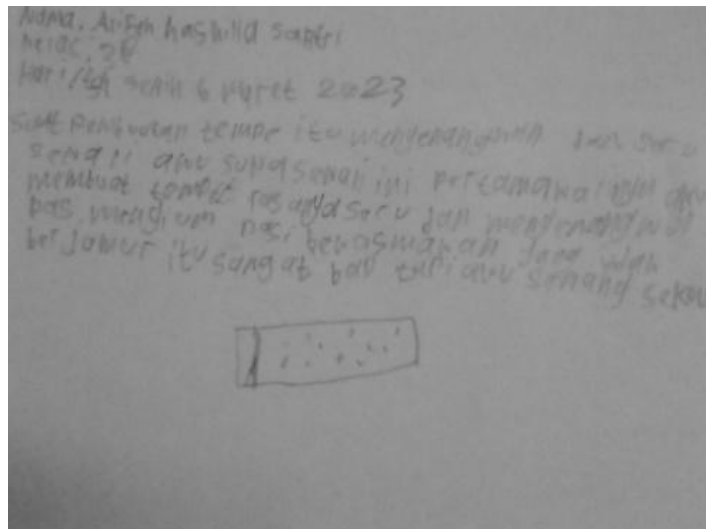 Nama. Arifah hashilla Saputri
kelas. 3B
Hari/tgl senin 6 maret 2023
saat Pembuatan tempe itu menyenangkan dan seru
sekali aku suka sekali ini pertama kalinya aku
membuat tempe rasanya seru dan menyenangkan
pas mengium nasi bekas makan yang udah
berjamur itu sangat bau tapi aku senang sekali